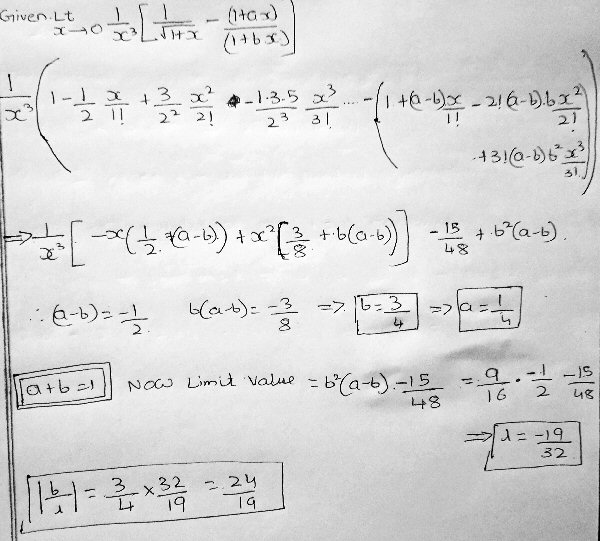 Given Lt x→0 1/x³ [ 1/√(1+x) − (1+ax)/(1+bx) ]
1/x³ ( 1 − 1/2 x/1! + 3/2² x²/2! − 1·3·5/2³ x³/3! .... − ( 1 + (a−b)x/1! − 2!(a−b).b x²/2!
+3!(a−b) b² x³/3! ) )
⇒ 1/x³ [ −x(1/2 + (a−b)) + x² [ 3/8 + b(a−b) ) ] − 15/48 + b²(a−b).
∴ (a−b) = −1/2 b(a−b) = −3/8 ⇒ b = 3/4 ⇒ a = 1/4
a+b=1 NOW Limit value = b²(a−b) −15/48 = 9/16 · −1/2 −15/48
⇒ λ = −19/32
|b/λ| = 3/4 × 32/19 = 24/19